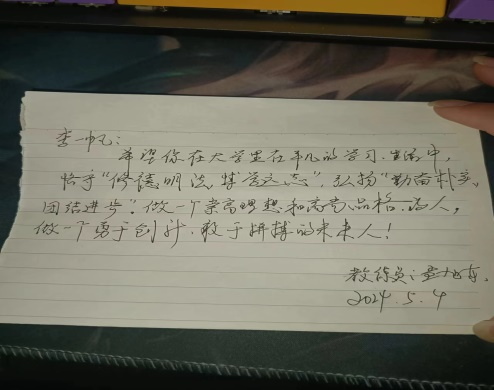 李一帆：
希望你在大学生在平凡的学习、生活中，
恪守“修德明法、博学笃志”，弘扬“勤奋朴实、
团结进步”。做一个崇高理想和高尚品格的人，
做一个勇于创新、敢于拼搏的未来人！
教练员：
2024.5.4